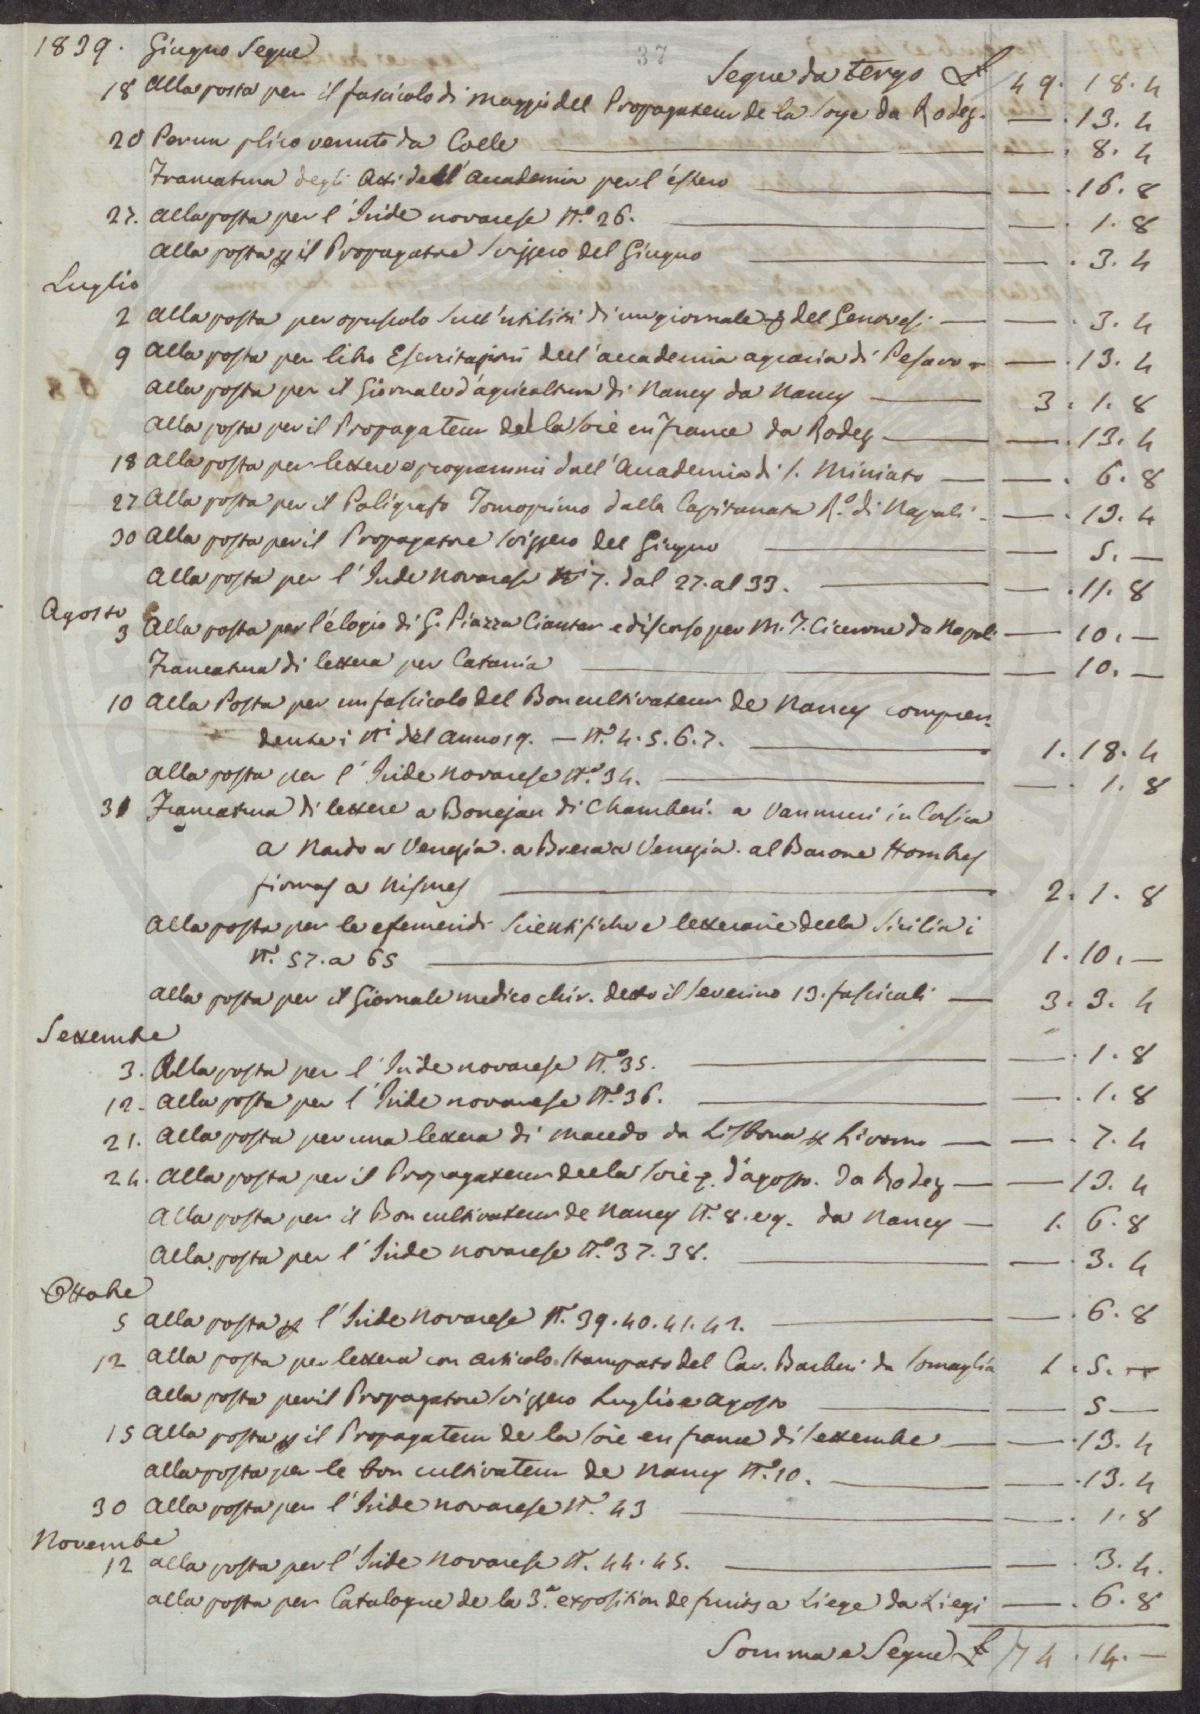 1839. Giugno Segue
37
Segue da tergo £ 49. 18. 4
18 Alla posta per il fascicolo di maggio del Propagateur de la Soye da Rodez. — . 13. 4
20 Per un plico venuto da Colle — . 8. 4
Francatura degli Atti dell'Accademia per l'éstero — . 16. 8
27. Alla posta per l'Iride novarese N.° 26. — . 1. 8
Alla posta p il Propagatore Svizzero del Giugno — . 3. 4
Luglio
2 Alla posta per opuscolo sull'utilità di un giornale del Genovesi — . 3. 4
9 Alla posta per libro Esercitazioni dell'accademia agraria di Pesaro — . 13. 4
Alla posta per il Giornale d'agricoltura di Nancy da Nancy — 3. 1. 8
Alla posta per il Propagateur de la Soie en France da Rodez — . 13. 4
18 Alla posta per lettere e programmi dall'Accademia di S. Miniato — . 6. 8
27 Alla posta per il Poligrafo Tomo primo dalla Capitanata R.° di Napoli — . 13. 4
30 Alla posta per il Propagatore Svizzero del Giugno — 5. —
Alla posta per l'Iride Novarese Ni 7. dal 27. al 33. — . 11. 8
Agosto
3 Alla posta per l'élogio di G. Piazza Ciantar e discorso per M. T. Cicerone da Napoli — 10. —
Francatura di lettera per Catania — 10. —
10 Alla Posta per un fascicolo del Bon cultivateur de Nancy compren-
dente i Ni del anno 19. — N.° 4. 5. 6. 7. — 1. 18. 4
Alla posta per l'Iride Novarese N.° 34. — . 1. 8
31 Francatura di lettere a Bonejan di Chamberi. a Vannucci in Corsica
a Nardo a Venezia. a Brera a Venezia. al Barone Hombres
firmas a Nismes — 2. 1. 8
Alla posta per le efemeridi Scientifiche e letterarie della Sicilia i
Ni 57. a 65 — 1. 10. —
Alla posta per il Giornale medico chir. detto il Severino 13. fascicoli — 3. 3. 4
Settembre
3. Alla posta per l'Iride novarese N.° 35. — . 1. 8
12. Alla posta per l'Iride novarese N.° 36. — . 1. 8
21. Alla posta per una lettera di Macedo da Lisbona p Livorno — . 7. 4
24. Alla posta per il Propagateur della Soie d'agosto. da Rodez — 13. 4
Alla posta per il Bon cultivateur de Nancy N. 8. e 9. da Nancy — 1. 6. 8
Alla posta per l'Iride novarese N.° 37. 38. — . 3. 4
Ottobre
5 Alla posta p l'Iride Novarese N. 39. 40. 41. 42. — . 6. 8
12 Alla posta per lettera con articolo stampato del Cav. Barberi da Somaglia 1. 5. —
Alla posta per il Propagatore Svizzero Luglio e Agosto — 5 —
15 Alla posta p il Propagateur de la Soie en france di settembre — . 13. 4
Alla posta per le bon cultivateur de Nancy N.° 10. — . 13. 4
30 Alla posta per l'Iride novarese N.° 43 — . 1. 8
Novembre
12 alla posta per l'Iride Novarese N. 44. 45. — . 3. 4.
alla posta per Catalogue de la 3.e exposition de fruits a Liege da Liegi — . 6. 8
Somma e Segue £ 74. 14. —